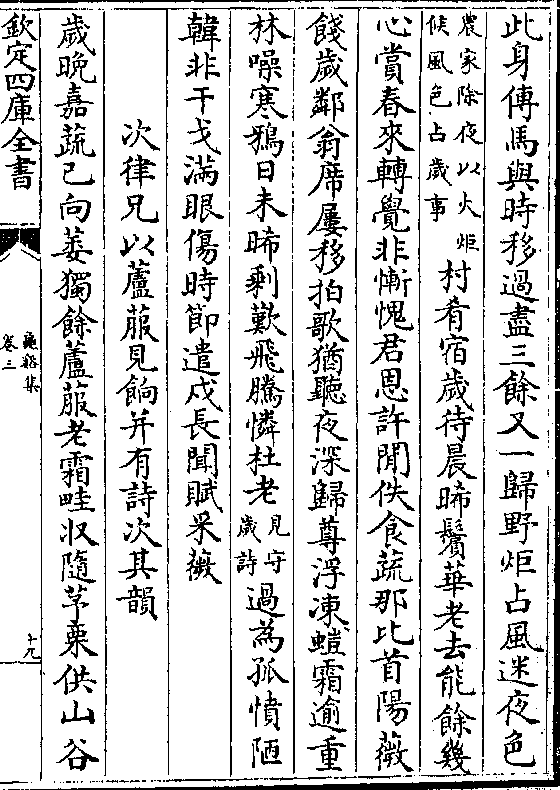 此身傳馬與時移過盡三餘又一歸野炬占風迷夜色
農家除夜以火炬
候風色占歲事
村肴宿歲待晨晞鬢華老去能餘幾
心賞春來轉覺非慚愧君恩許閒佚食蔬那比首陽薇
餞歲鄰翁席屢移拍歌猶聽夜深歸尊浮凍螘霜逾重
林噪寒鵶日未晞剩歎飛騰憐杜老
見守
歲詩
過為孤憤陋
韓非干戈滿眼傷時節遣戍長聞賦采薇
次律兄以蘆菔見餉并有詩次其韻
歲晩嘉蔬已向萎獨餘蘆菔老霜畦収隨芧栗供山谷
欽定四庫全書
龜谿集
卷三
十九